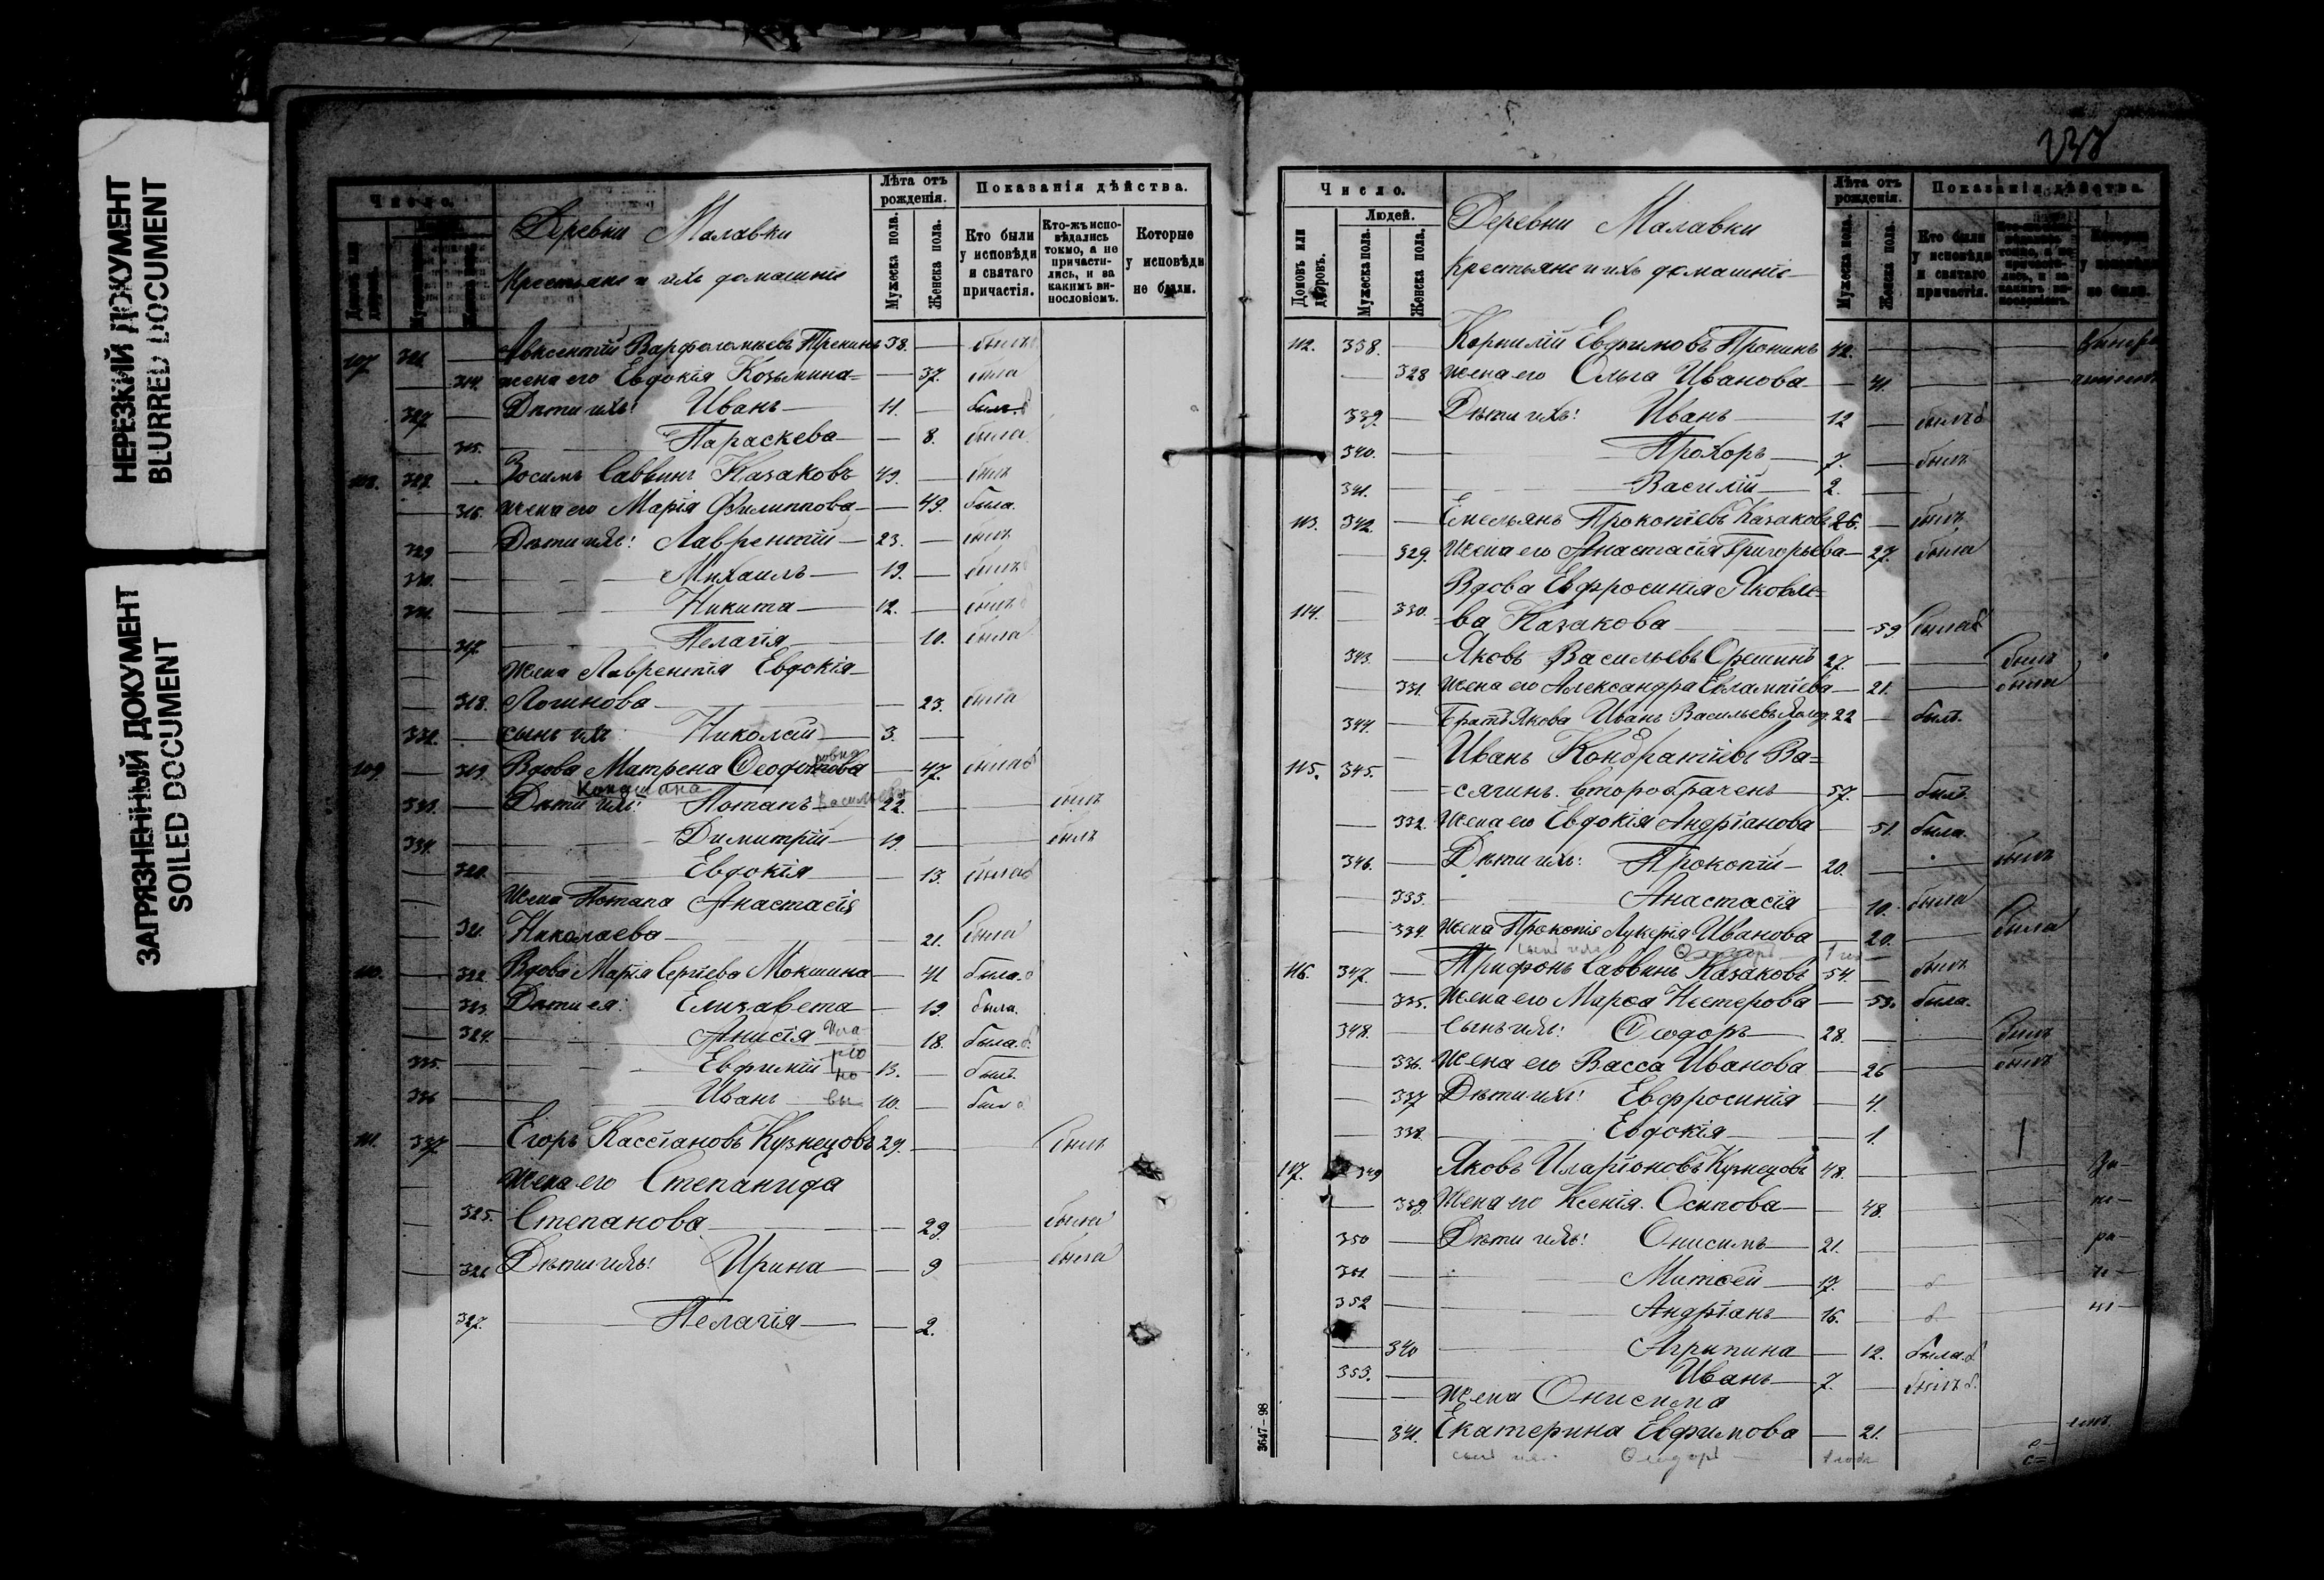 НЕРЕЗКИЙ ДОКУМЕНТ
BLURRED DOCUMENT
ЗАГРЯЗНЕННЫЙ ДОКУМЕНТ
SOILED DOCUMENT
Число.
Лѣта отъ рожденія.
Показанія дѣйства.
Мужеска пола.
Женска пола.
Кто были у исповѣди и святаго причастія.
Кто-жъ исповѣдались токмо, а не причастились, и за какимъ винословіемъ.
Которые у исповѣди не были.
Деревни Малавки
Крестьяне и ихъ домашніе
107 326 — Авксентій Варфоломеевъ Пронинъ 38. — былъ
— 314. жена его Евдокія Козьмина — 37. была
327 — Дѣти ихъ: Иванъ — 11. — былъ
— 315. Параскева — 8. была
108. 328. — Зосимъ Саввинъ Казаковъ 49. — былъ
— 316. жена его Марія Филиппова — 49. была.
329 — Дѣти ихъ: Лаврентій — 23. — былъ
330. — Михаилъ — 19. — былъ
331. — Никита — 12. — былъ
— 317. Пелагія — 10. была
Жена Лаврентія Евдокія
— 318. Логинова — 23. была
332. — сынъ ихъ Николай — 3. —
109. — 319. Вдова Матрена Ѳеодотова — 47. была
Канашана
333. — Дѣти ихъ: Потапъ Васильевъ 22. — былъ
334. — Димитрій — 19. — былъ
— 320. Евдокія — 13. была
Жена Потапа Анастасія
— 321. Николаева — 21. была
110. — 322. Вдова Марія Сергіева Мокшина — 41 была.
— 323. Дѣти ея: Елизавета — 19. была.
— 324. Анисія — 18. была.
335. — Евфимій — 13. — былъ.
336 — Иванъ — 10. — былъ
111. 337. — Егоръ Кассіановъ Кузнецовъ 29. — былъ
Жена его Степанида
— 325. Степанова — 29. была
— 326 Дѣти ихъ: Ирина — 9 была
327. Пелагія — 2.
238
Число.
Людей.
Домовъ или дворовъ.
Мужеска пола.
Женска пола.
Лѣта отъ рожденія.
Показанія дѣйства.
Мужеска пола.
Женска пола.
Кто были у исповѣди и святаго причастія.
Деревни Малавки
Крестьяне и ихъ домашніе
112. 338. — Корнилій Евфимовъ Пронинъ 42. —
— 328 жена его Ольга Иванова — 41. —
339. — Дѣти ихъ: Иванъ — 12 — былъ
340. — Прохоръ — 7. — былъ
341. — Василій — 2. —
113. 342. — Емельянъ Прокопіевъ Казаковъ 26. — былъ
— 329. Жена его Анастасія Григорьева — 27. была
Вдова Евфросинія Яковле=
114. — 330. =ва Казакова — 59 была
343. — Яковъ Васильевъ Орешинъ 27. — былъ
— 331. Жена его Александра Евлампіева — 21. — была
344. — Братъ Якова Иванъ Васильевъ 22 — былъ.
Иванъ Кондратіевъ Ва=
115. 345. — =сягинъ. второбраченъ — 57. — былъ.
— 332. Жена его Евдокія Андріанова — 51. была.
346. — Дѣти ихъ: Прокопій — 20. — былъ
— 333. Анастасія — 10. была
— 334. Жена Прокопія Лукерія Иванова — 20. — была
сынъ ихъ Ѳеодоръ 1 год
116. 347. — Трифонъ Саввинъ Казаковъ 54. — былъ
— 335. Жена его Марѳа Нестерова — 53. была.
348. — Сынъ ихъ: Ѳеодоръ — 28. — былъ
— 336. Жена его Васса Иванова — 26 — былъ
— 337 Дѣти ихъ: Евфросинія — 4.
— 338. Евдокія — 1.
117. 349 Яковъ Иларіоновъ Кузнецовъ 48. —
— 339. Жена его Ксенія Осипова — 48.
350 — Дѣти ихъ: Онисимъ — 21. —
351. — Матѳей — 17.
352 — Андріанъ — 16.
— 340 Агрипина — 12. была.
353. — Иванъ — 7. — былъ
Жена Онисима
— 341. Екатерина Евфимова — 21.
сынъ их. Ѳеодоръ — 1 года
3647—98